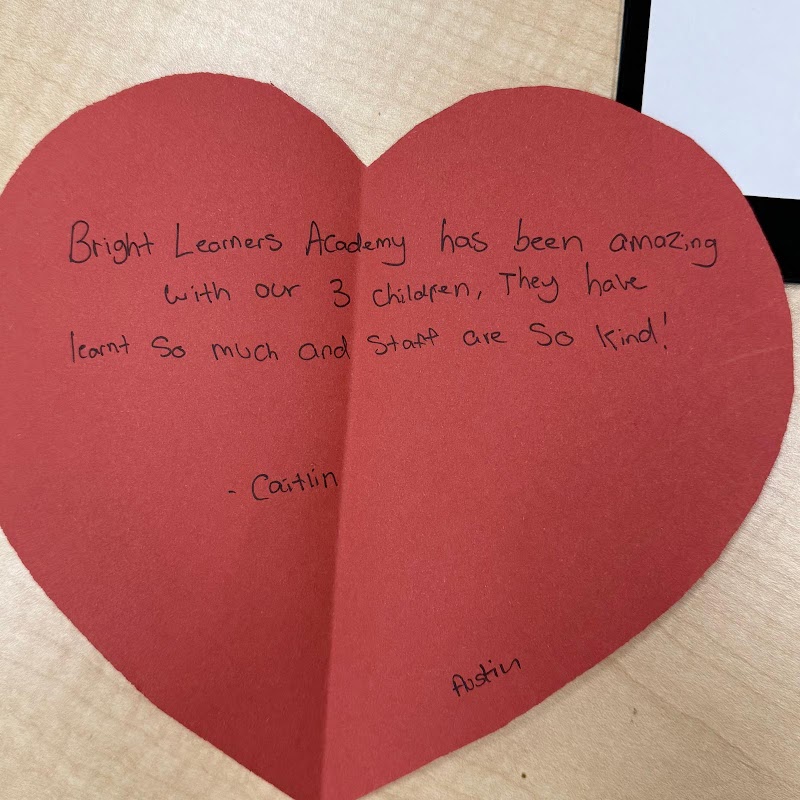 Bright Learners Academy has been amazing
with our 3 children, They have
learnt So much and Staff are So kind!
- Caitlin
Austin